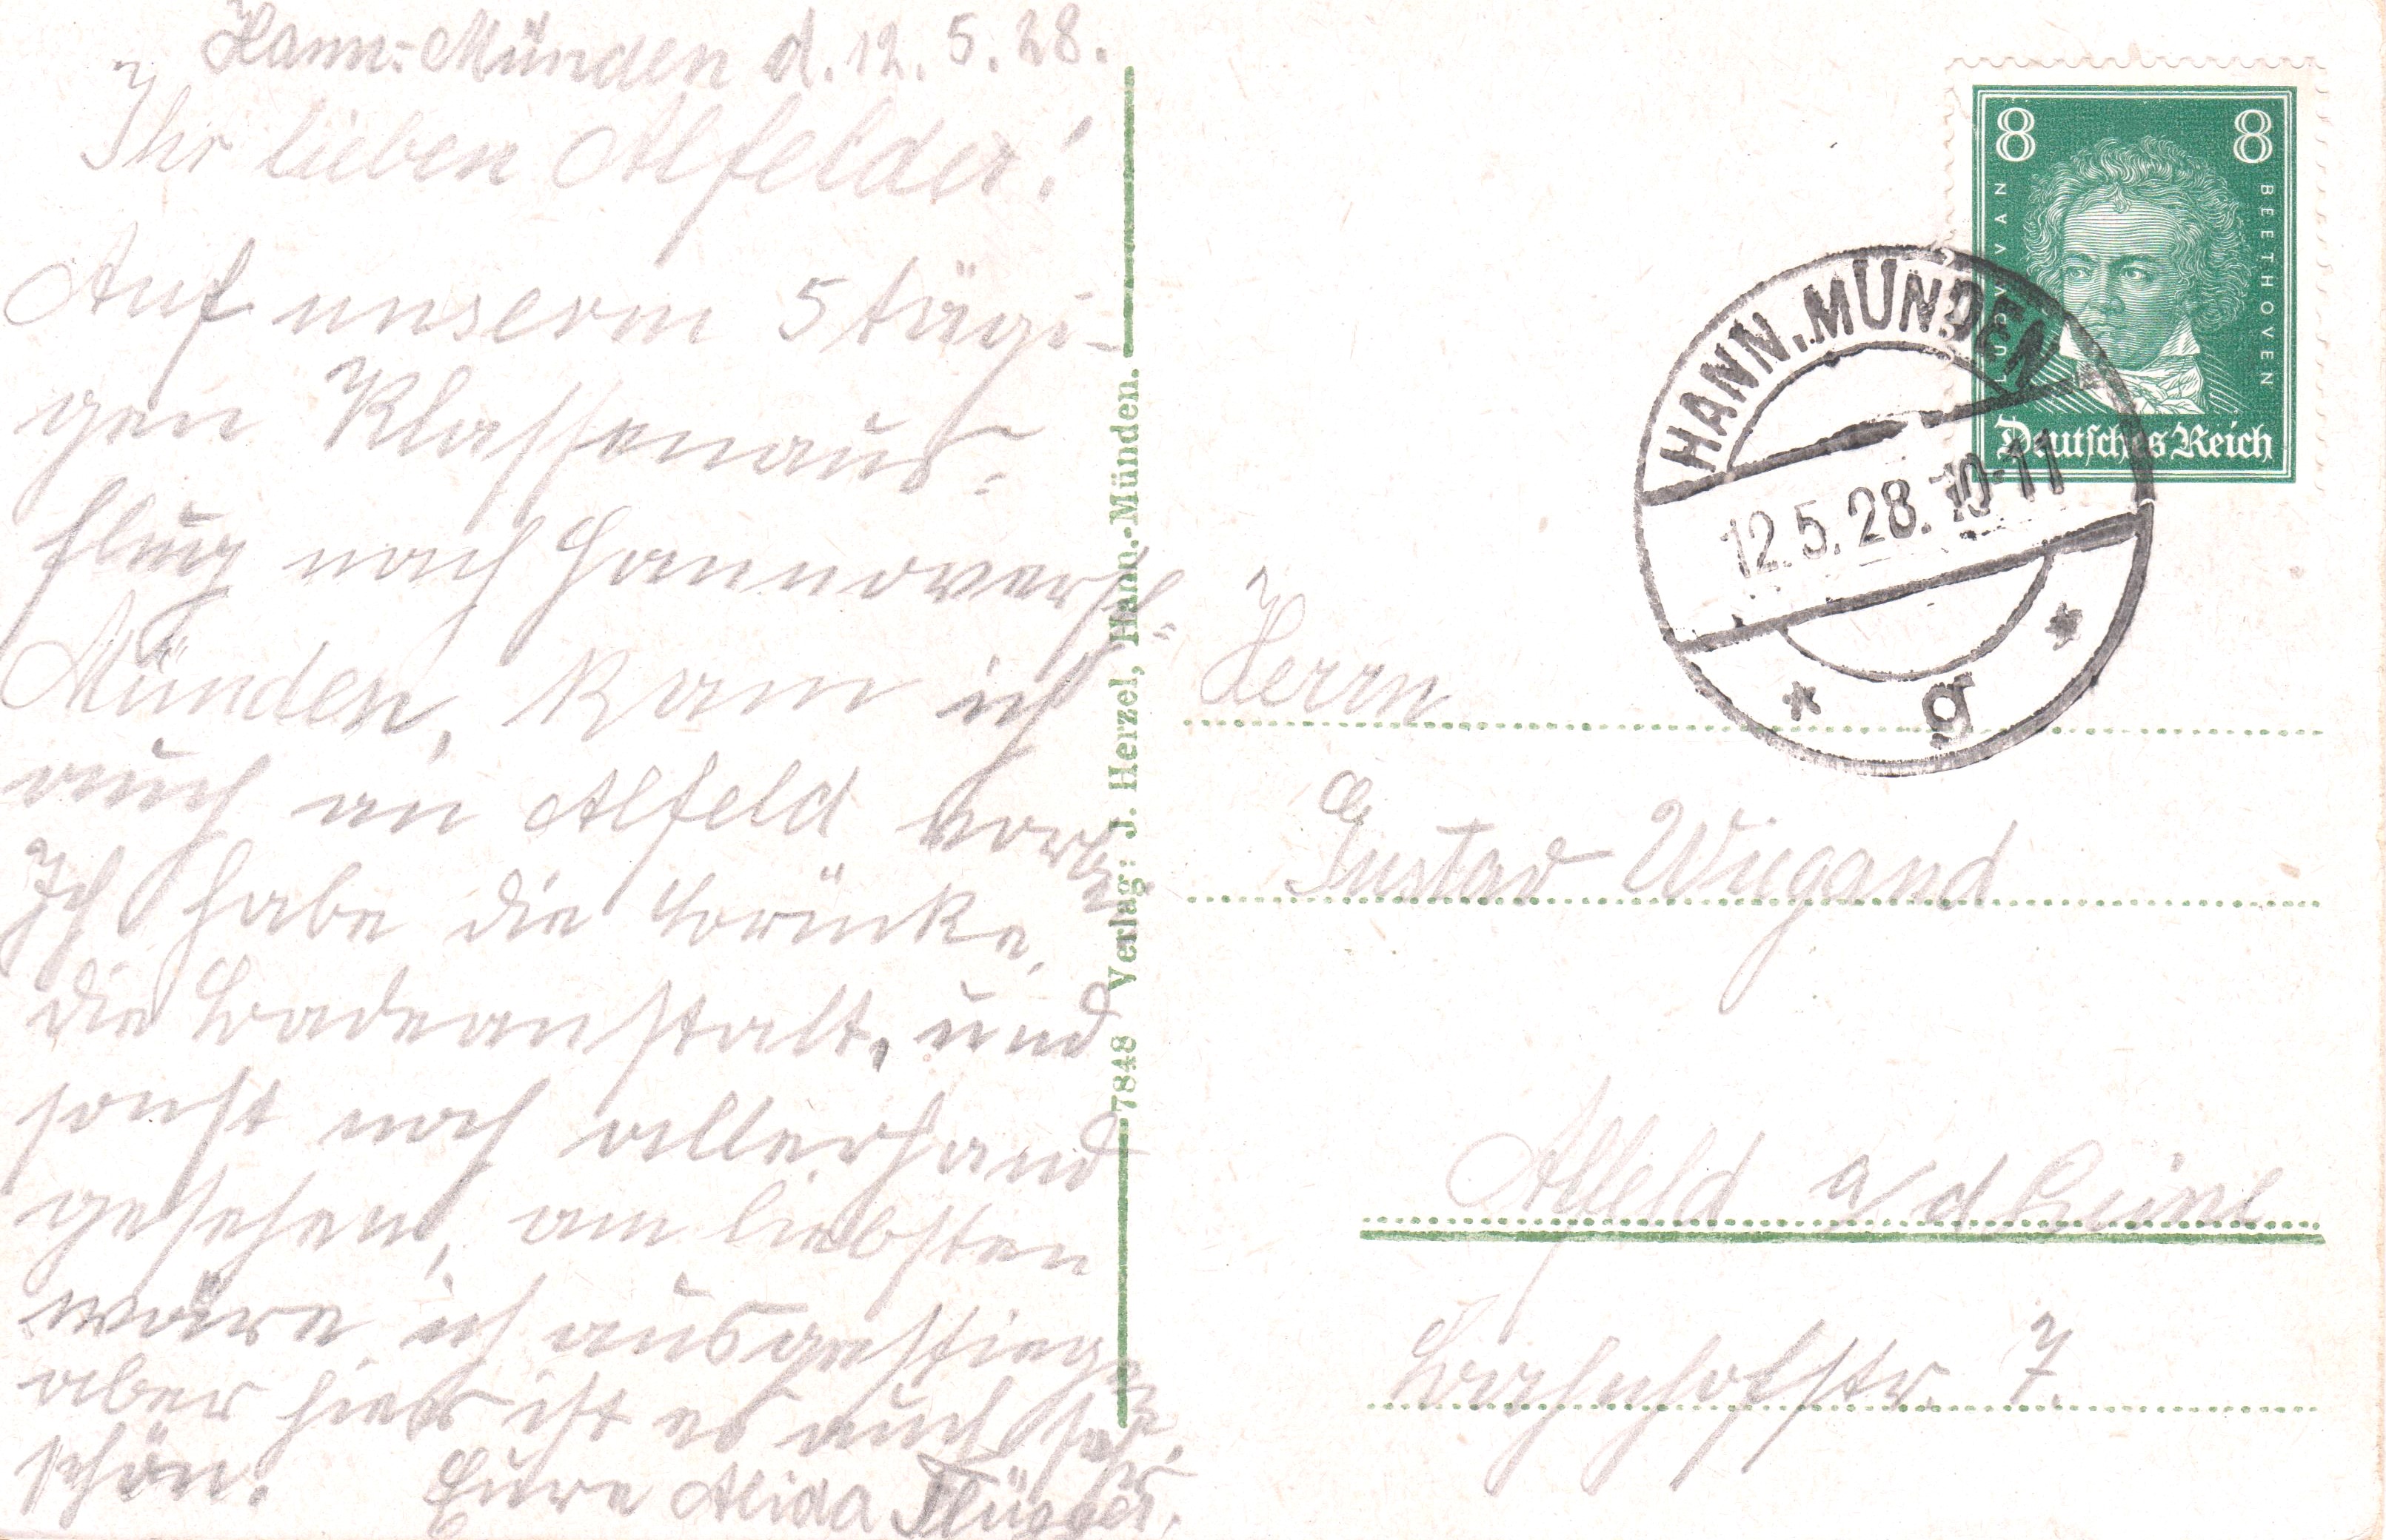 Hann.-Münden d. 12. 5. 28.
Ihr lieben Alfelder!
Auf unserm 5 tägi-
gen Klassenaus-
flug nach Hannoversch-
Münden, kam ich
auch an Alfeld vorbei.
Ich habe die Brücke,
die Badeanstalt, und
sonst noch allerhand
gesehen, am liebsten
wäre ich ausgestiegen,
aber hier ist es auch sehr
schön. Eure Alida
7848 Verlag: J. Herzel, Hann.-Münden.
8 8
LUDWIG VAN BEETHOVEN
Deutsches Reich
HANN. MÜNDEN
12.5.28. 10-11
* g *
Herrn
Gustav Wiegand
Alfeld a/d Leine
Bahnhofstr. 7.